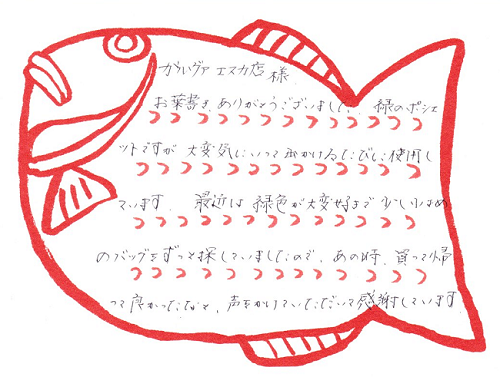 ガルヴァ エスカ店 様
お葉書き、ありがとうございました。緑のポシェ
ットですが 大変気にいって 出かけるたびに使用し
ています。最近は 緑色が大変好きで 少し小さめ
のバッグをずっと探していましたので、あの時、買って帰
って良かったなと、声をかけていただいて感謝しています